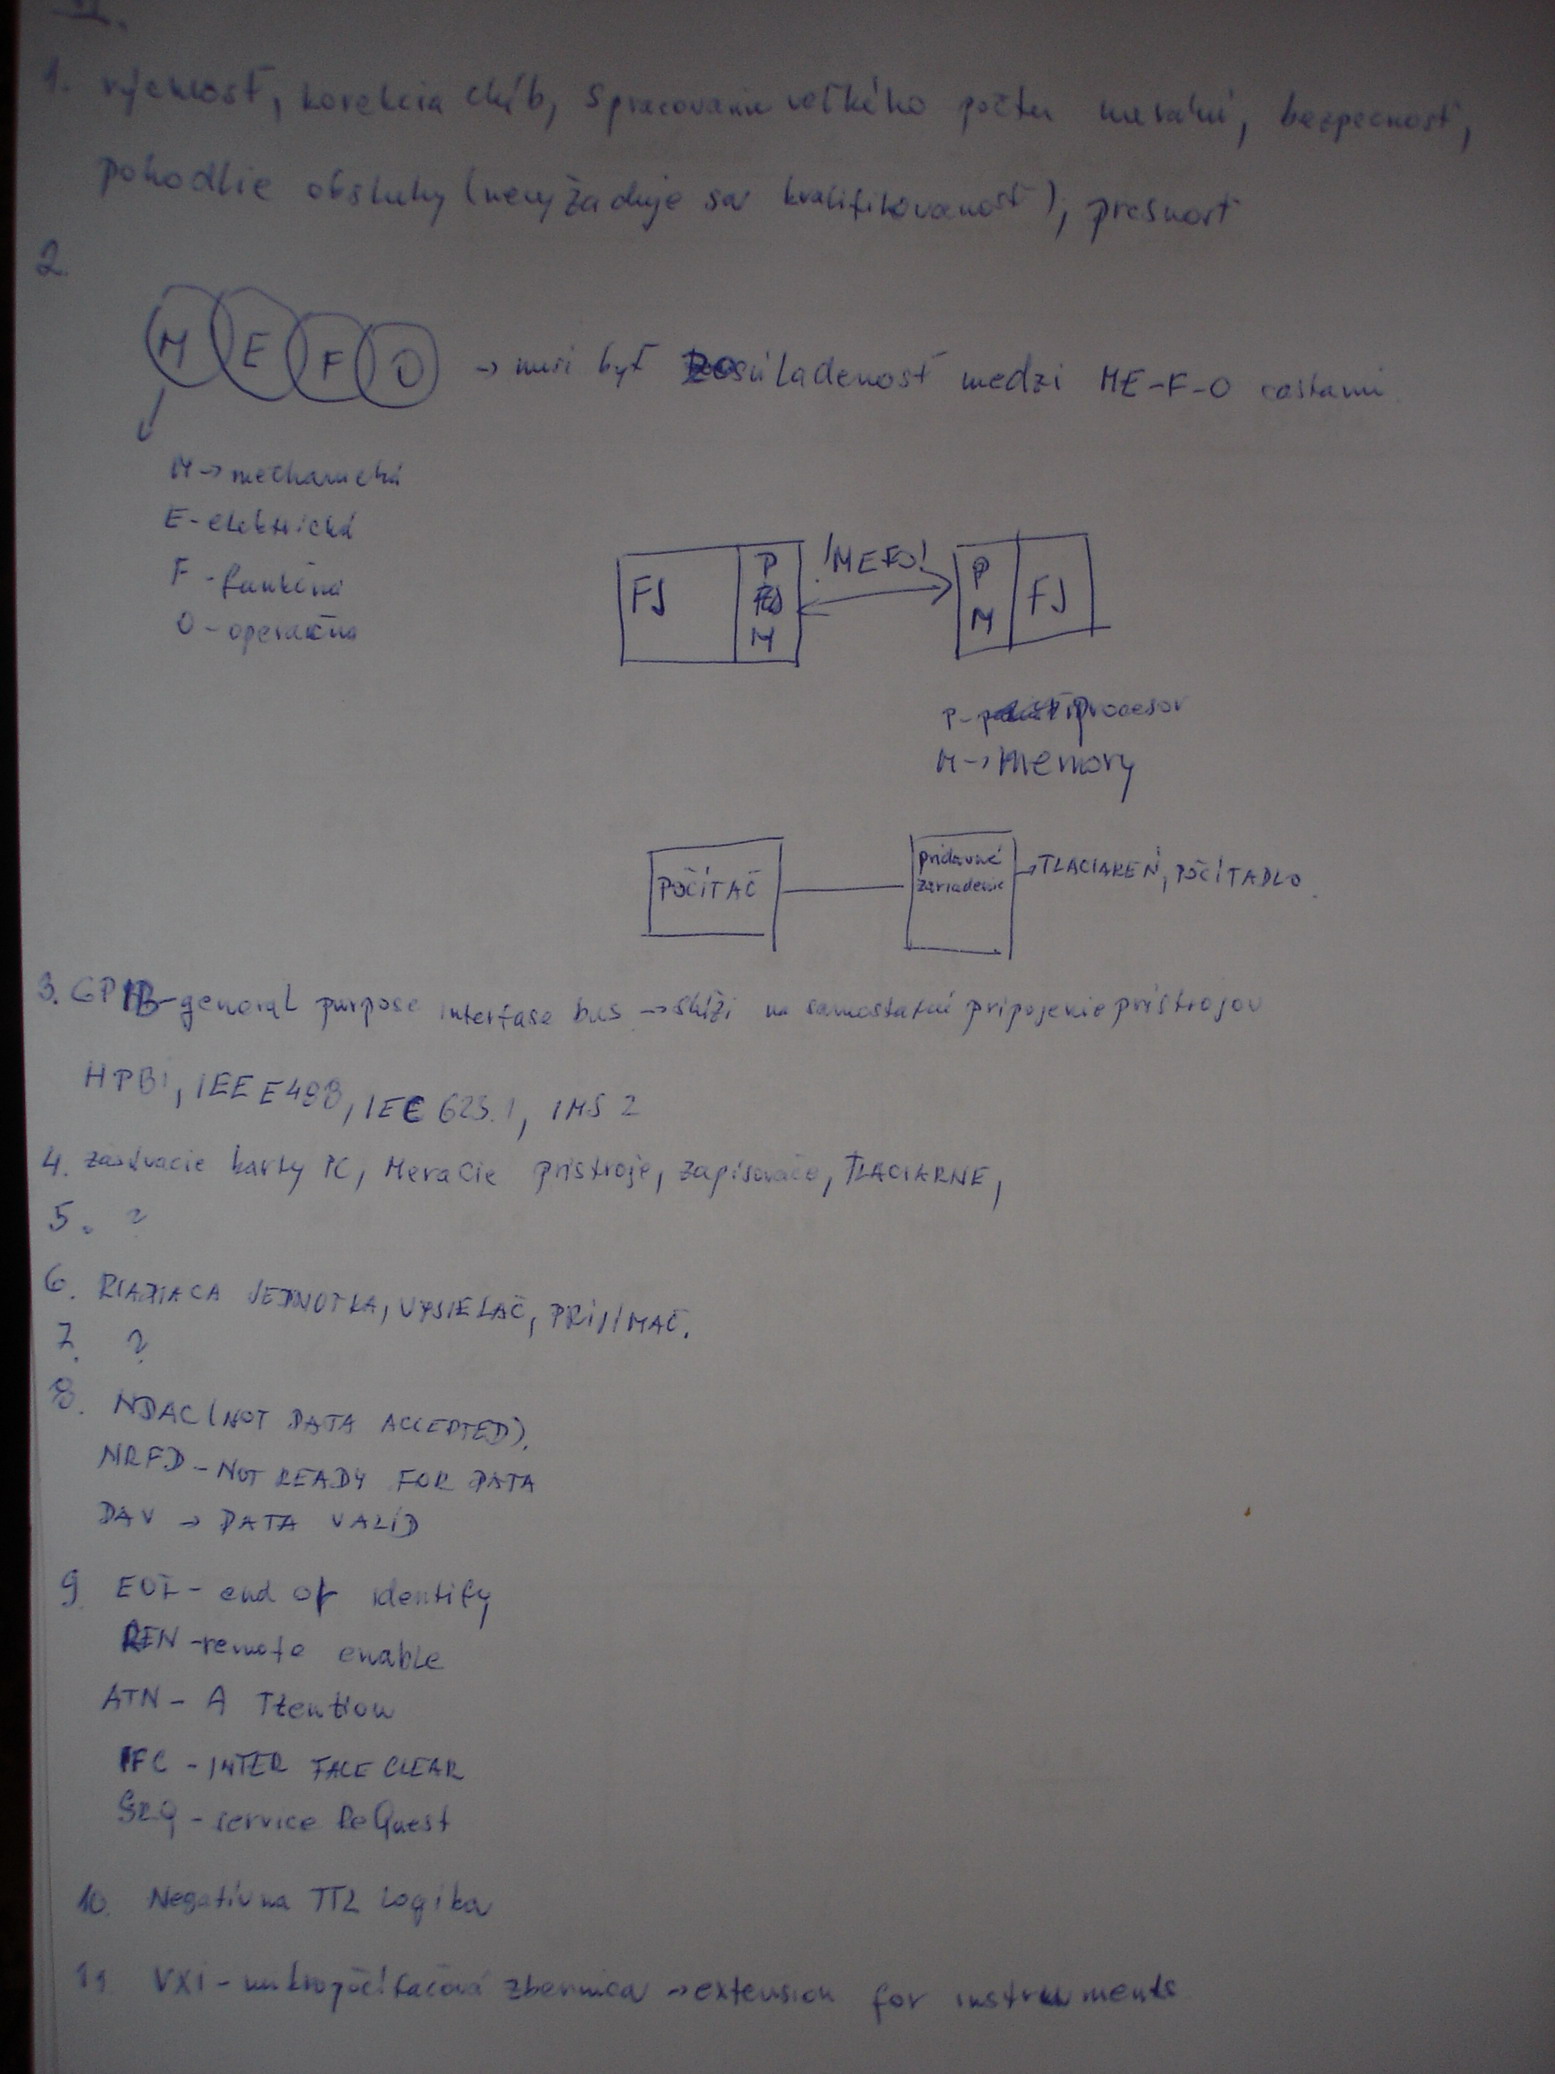 II.
1. rýchlosť, korekcia chýb, spracovanie veľkého počtu meraní, bezpecnosť,
pohodlie obsluhy (nevyžaduje sa kvalifikovanosť), presnosť
2.
M E F O → musí byť súladenosť medzi ME-F-O castami
M → mechanická
E - elektrická
F - funkčná
O - operačná
FJ P M !MEFO! P M FJ
P - procesor
M → memory
POČÍTAČ pridavné
zariadenie → TLACIAREŇ, POČÍTADLO
3. GPIB - general purpose interfase bus → slúži na samostatné pripojenie prístrojov
HPBI, IEEE 488, IEC 625.1, IMS 2
4. zásuvacie karty PC, Meracie pristroje, zapisovače, TLACIARNE,
5. ?
6. RIADIACA JEDNOTKA, VYSIELAČ, PRIJIMAČ.
7. ?
8. NDAC (NOT DATA ACCEPTED),
NRFD - NOT READY FOR DATA
DAV → DATA VALID
9. EOI - end of identify
REN - remote enable
ATN - A Ttention
IFC - INTER FACE CLEAR
SRQ - service ReQuest
10. Negatívna TTL logika
11. VXI - mikropočítačová zbernica → extension for instruments